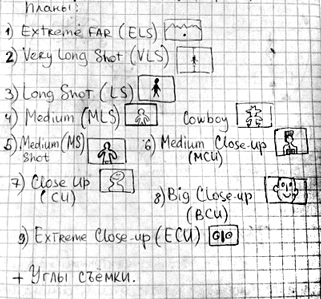 Планы:
1) Extreme FAR (ELS)
2) Very Long Shot (VLS)
3) Long Shot (LS)
4) Medium (MLS) Cowboy
5) Medium (MS) Shot
6) Medium Close-up (MCU)
7) Close Up (CU)
8) Big Close-up (BCU)
9) Extreme Close-up (ECU)
+ Углы съёмки.